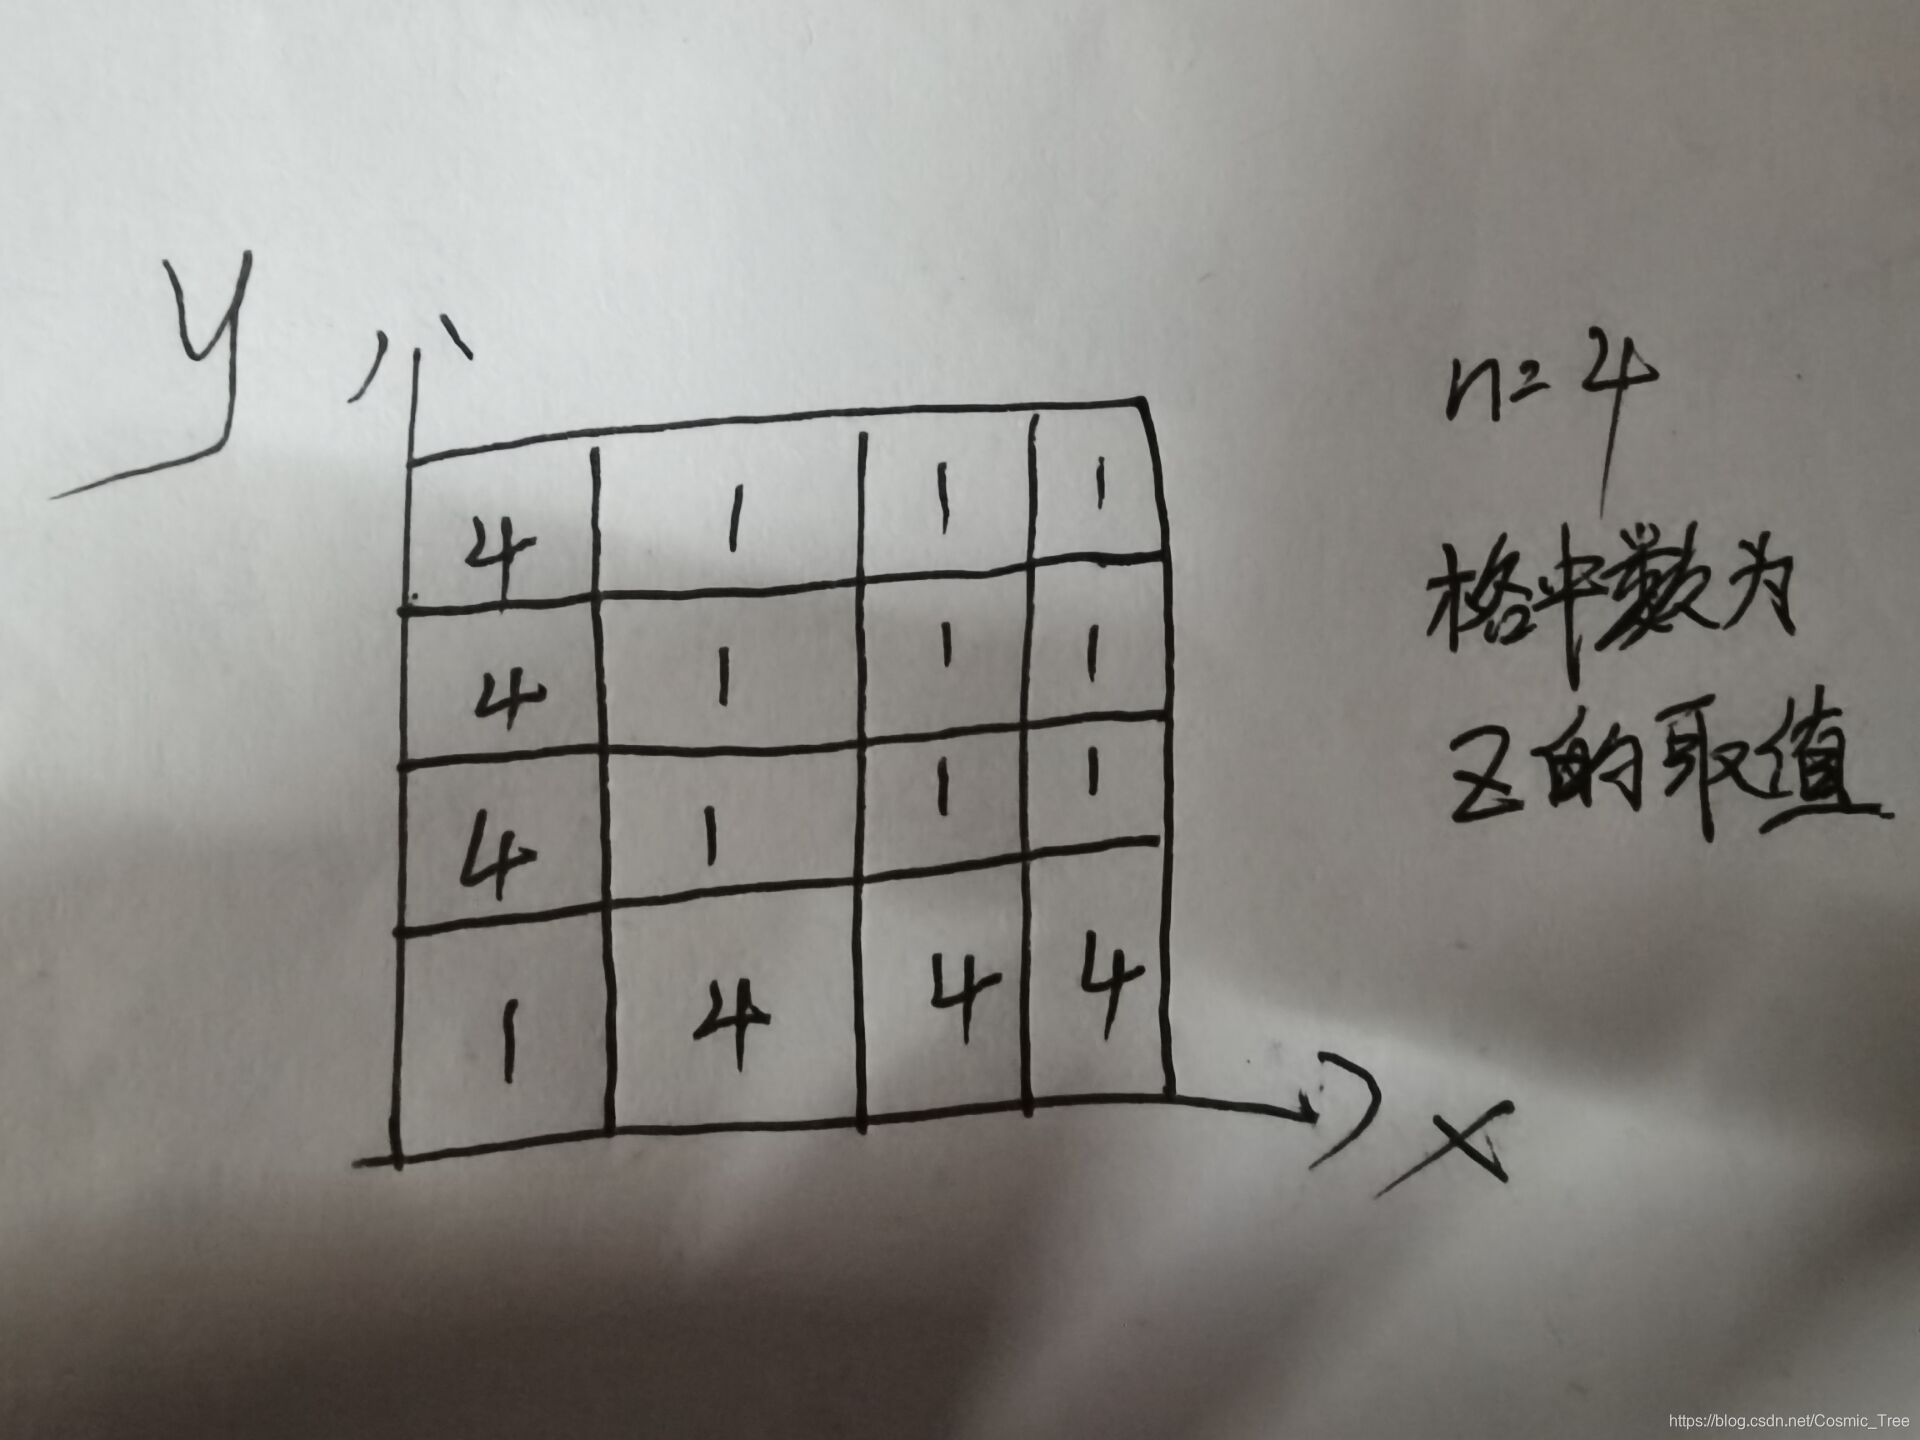 y
n=4
4 1 1 1
格中数为
4 1 1 1
z的取值
4 1 1 1
1 4 4 4
x
https://blog.csdn.net/Cosmic_Tree